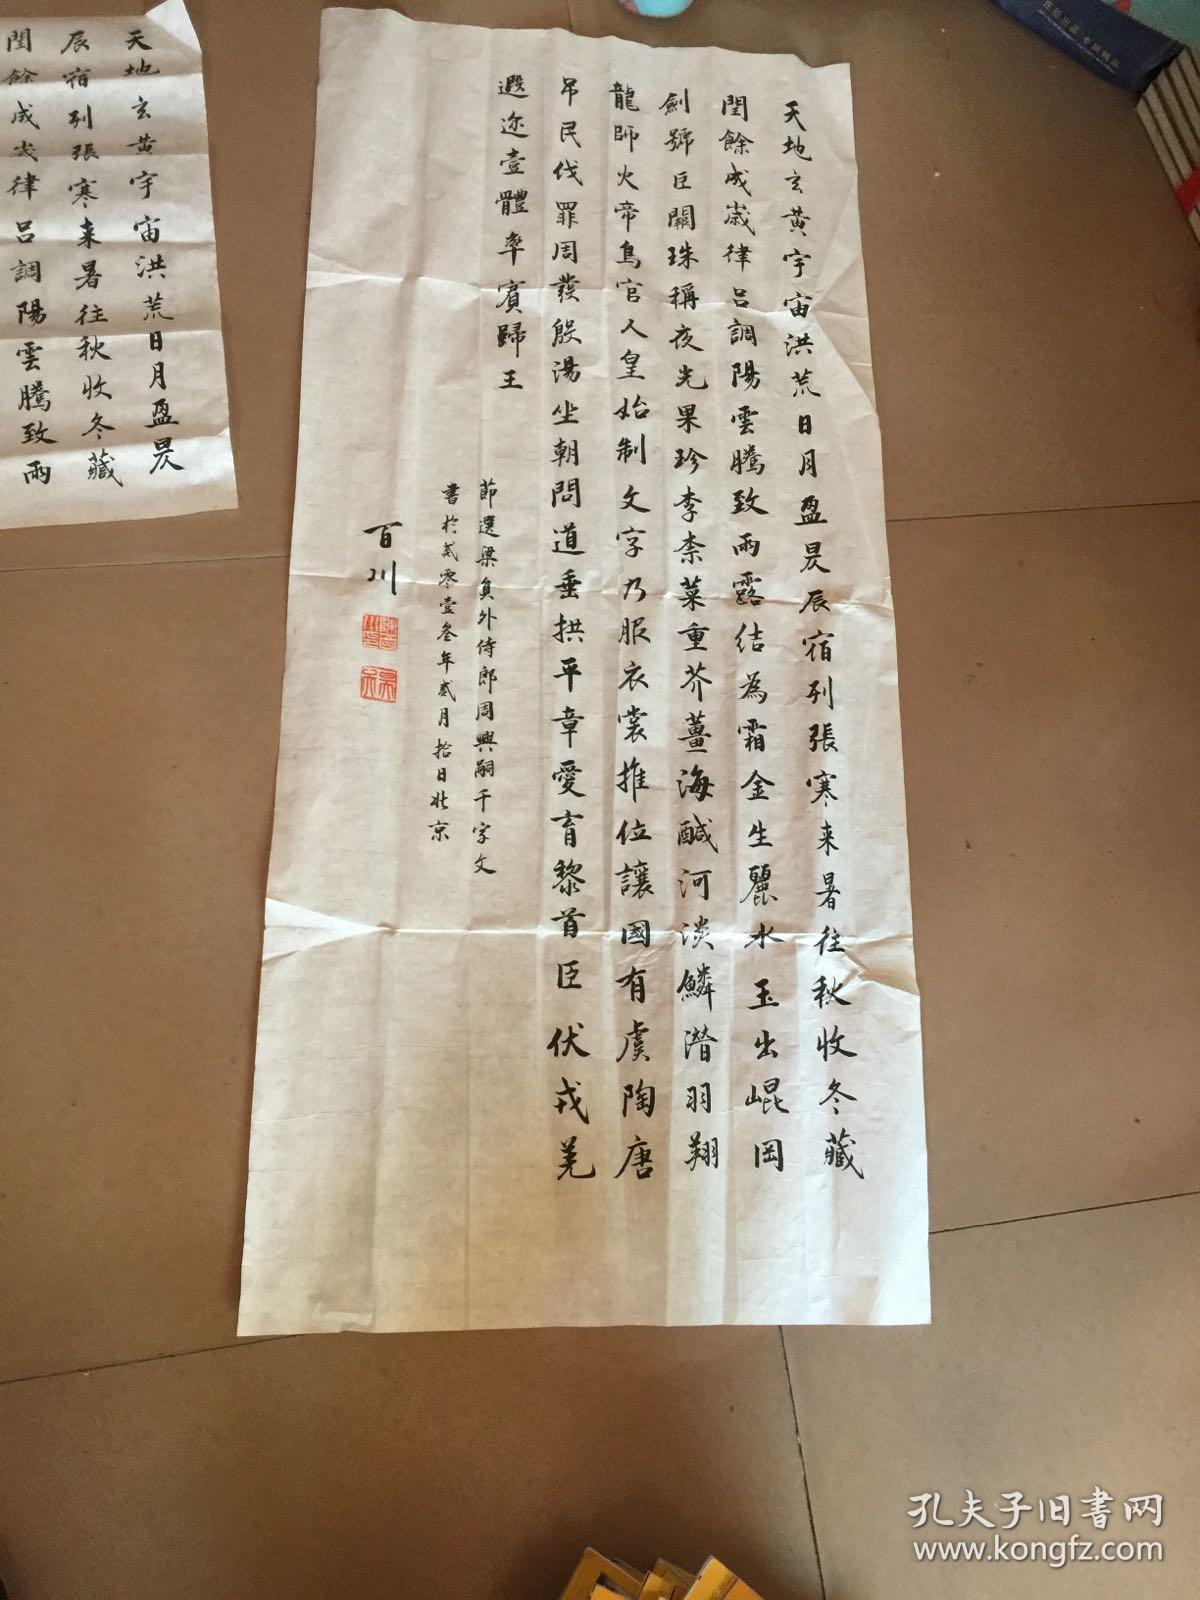 天地玄黃宇宙洪荒日月盈昃辰宿列張寒来暑往秋收冬藏
閏餘成歲律吕調陽雲騰致雨露結為霜金生麗水玉出崐岡
劍號巨闕珠稱夜光果珍李柰菜重芥薑海鹹河淡鱗潛羽翔
龍師火帝鳥官人皇始制文字乃服衣裳推位讓國有虞陶唐
吊民伐罪周發殷湯坐朝問道垂拱平章愛育黎首臣伏戎羌
遐迩壹體率賓歸王
節選梁員外侍郎周興嗣千字文
書於貳零壹叁年貳月拾日北京
百川
天地玄黃宇宙洪荒日月盈昃
辰宿列張寒来暑往秋收冬藏
閏餘成歲律吕調陽雲騰致雨
孔夫子旧书网
www.kongfz.com